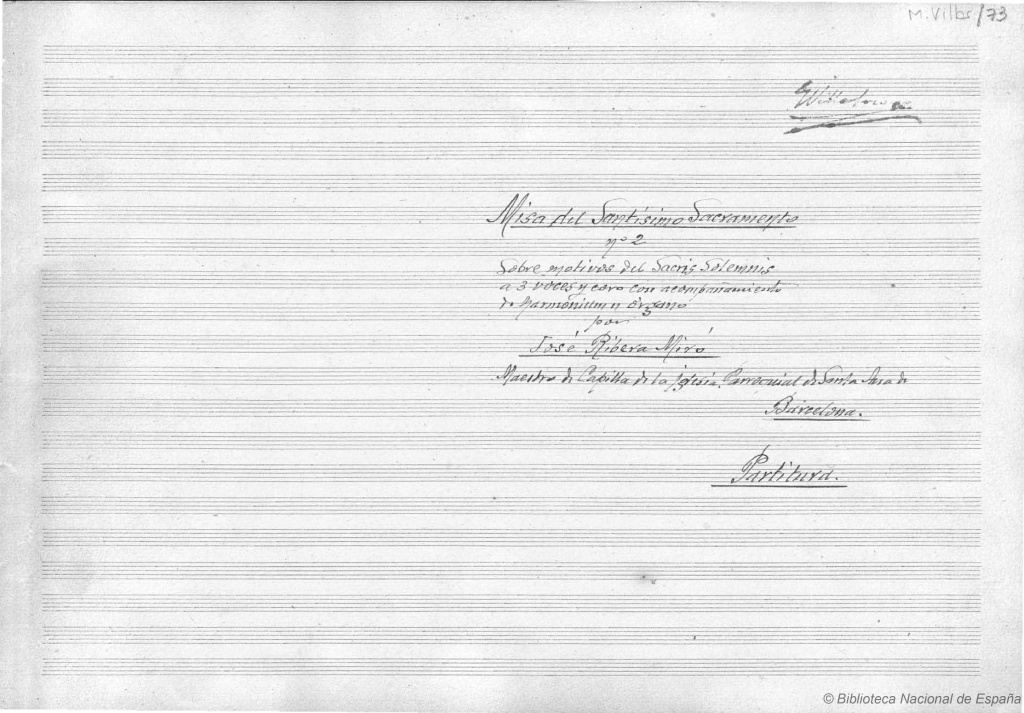 M.Vilbr/73
Misa del Santísimo Sacramento
nº 2
Sobre motivos del Sacris Solemnis
a 3 voces y coro con acompañamiento
de harmonium u órgano
por
José Ribera Miró
Maestro de Capilla de la Iglesia Parroquial de Santa Ana de
Barcelona.
Partitura.
© Biblioteca Nacional de España